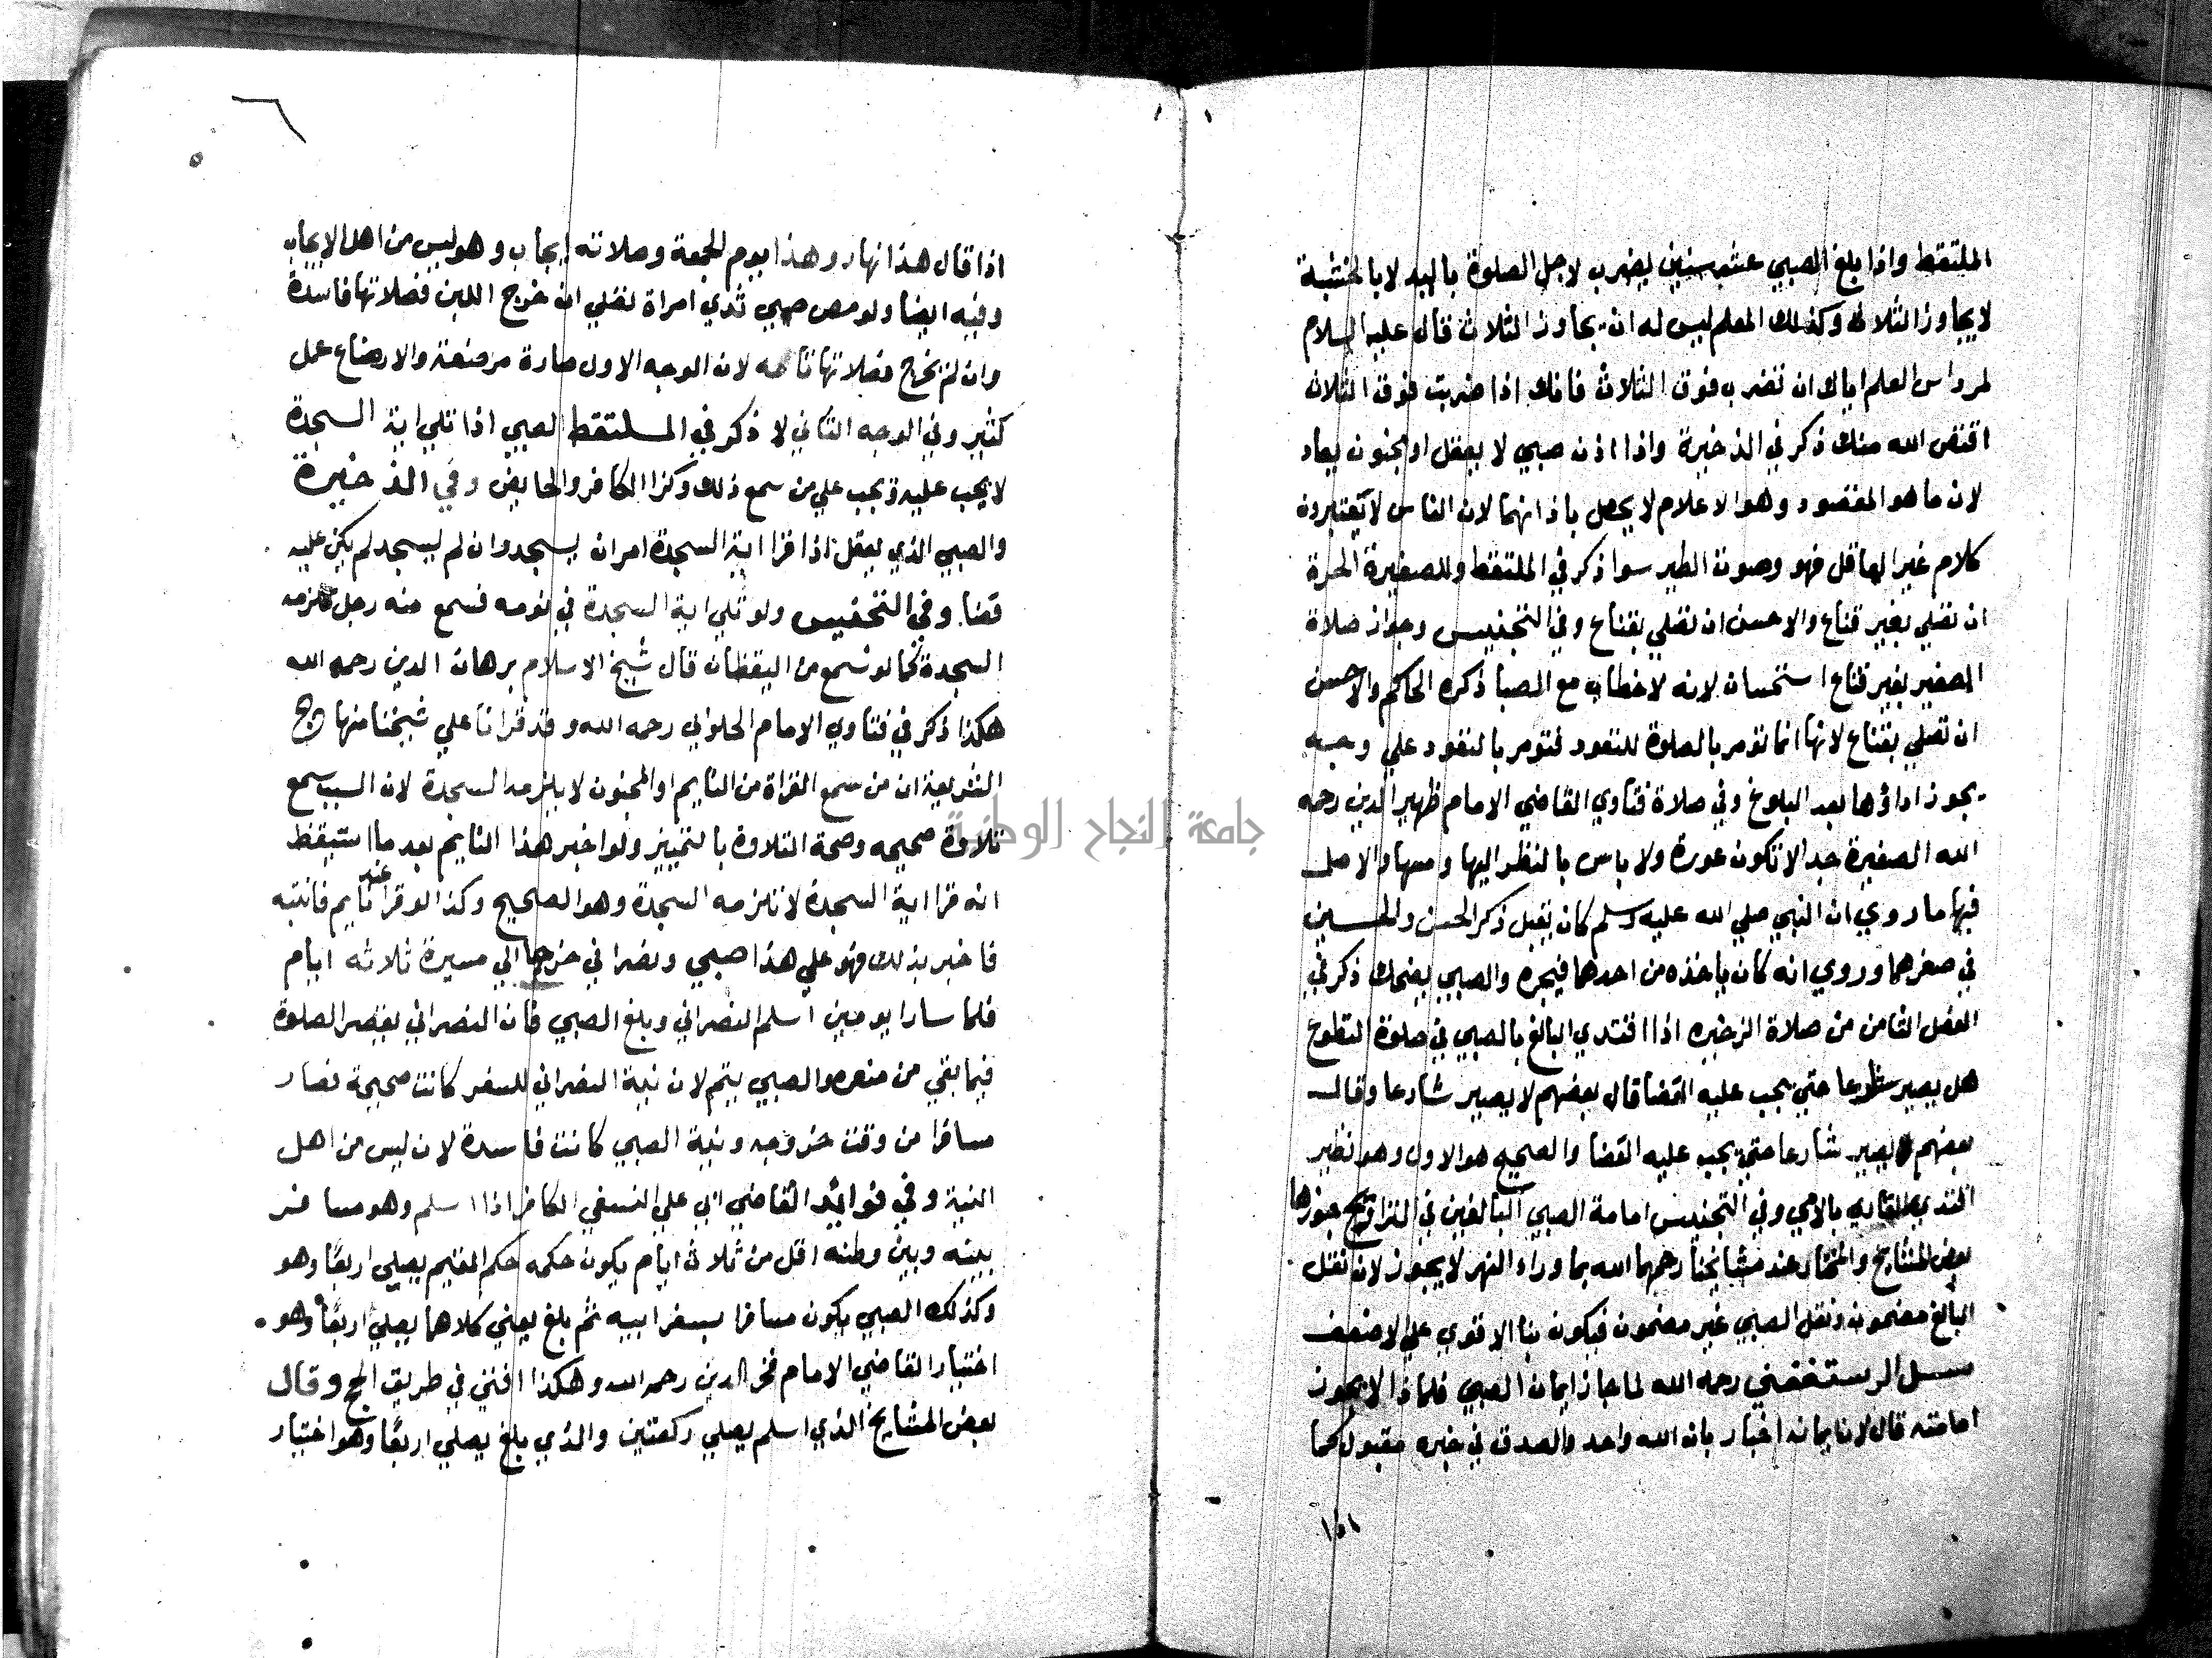 الملتقط واذا بلغ الصبي عشر سنين يضرب لاجل الصلوة باليد لا بالخشبة
لا يجاوز الثلاث وكذلك المعلم ليس له ان يجاوز الثلاث قال عليه السلام
لمرداس المعلم اياك ان تضرب فوق الثلاث فانك اذا ضربت فوق الثلاث
اقتص الله منك ذكر في الذخيرة واذا اذن صبي لا يعقل او مجنون يعاد
لان ما هو المقصود وهو الاعلام لا يحصل باذانهما لان الناس لا يعتبرون
كلام غير العاقل فهو وصوت الطير سوا ذكر في الملتقط وللصغيرة الحرة
ان تصلي بغير قناع والاحسن ان تصلي بقناع وفي التجنيس وجواز صلاة
الصغير بغير قناع استحسان لانه لا خطاب مع الصبا ذكره الحاكم والاحسن
ان تصلي بقناع لانها انما تومر بالصلوة للتعود فتومر بالتعود علي وجه
يجوز اداؤها بعد البلوغ وفي صلاة فتاوي القاضي الامام ظهير الدين رحمه
الله الصغيرة جدا لا تكون عورة ولا باس بالنظر اليها ومسها والاصل
فيها ما روي ان النبي صلي الله عليه وسلم كان يقبل ذكر الحسن والحسين
في صغرهما وروي انه كان ياخذه من احدهما فيجره والصبي يضحك ذكر في
الفصل الثامن من صلاة الزخيره اذا اقتدي البالغ بالصبي في صلوة التطوع
هل يصير شارعا حتي يجب عليه القضا قال بعضهم لا يصير شارعا وقال
بعضهم يصير شارعا حتي يجب عليه القضا والصحيح هو الاول وهو نظير
القاري بالامي وفي التجنيس امامة الصبي البالغين في التراويح جوزها
بعض المشايخ والمختار عند مشايخنا رحمهما الله بما وراء النهر لا يجوز لان نفل
البالغ مضمون ونفل الصبي غير مضمون فيكون بنا الاقوي علي الاضعف
سيل الرستغفني رحمه الله لما جاز ايمان الصبي فلماذا لا يجوز
امامته قال لان ايمانه اخبار بان الله واحد والصدق في خبره مقبول كما
١٥١
٦
٥
اذا قال هذا نهار وهذا يوم الجمعة وصلاته ايجاب وهو ليس من اهل الايجاب
وفيه ايضا ولو مص صبي ثدي امراة تصلي ان خرج اللبن فصلاتها فاسدة
وان لم يخرج فصلاتها لان الوجه الاول صارة مرضعة والارضاع عمل
كثير وفي الوجه الثاني لا ذكر في الملتقط الصبي اذا تلي اية السجدة
لا يجب عليه ويجب علي من سمع ذلك وكذا الكافر والحايض وفي الذخيرة
والصبي الذي يعقل اذا قرا اية السجدة امر ان يسجد وان لم يسجد لم يكن عليه
قضا وفي التجنيس ولو تلي اية السجدة في نومه فسمع منه رجل تلزمه
السجدة كما لو سمع من اليقظان قال شيخ الاسلام برهان الدين رحمه الله
هكذا ذكر في فتاوي الامام الحلواني رحمه الله وقد قرانا علي شيخنا منهاج
الشريعة ان من سمع القراة من النايم او المجنون لا يلزمه السجدة لان السبب سمع
تلاوة صحيحه وصحة التلاوة بالتمييز ولو اخبر هذا النايم بعد ما استيقظ
انه قرا اية السجدة لا تلزمه السجدة وهو الصحيح وكذا لو قرا عند نايم فانتبه
فاخبر بذلك فهو علي هذا صبي ونصراني خرجا الي مسيرة ثلاثه ايام
فلما سارا يومين اسلم النصراني وبلغ الصبي فان النصراني يقصر الصلوة
فيما بقي من سفره والصبي يتم لان نية النصراني للسفر كانت صحيحة فصار
مسافرا من وقت خروجه ونية الصبي كانت فاسدة لان ليس من اهل
النية وفي فوائد القاضي ابي علي النسفي الكافر اذا اسلم وهو مسافر
بينه وبين وطنه اقل من ثلاث ايام يكون حكمه حكم المقيم يصلي اربعا وهو
وكذلك الصبي يكون مسافرا بسفر ابيه ثم بلغ يعني كلاهما يصلي اربعا وهو
اختيار القاضي الامام فخر الدين رحمه الله وهكذا افتي في طريق الحج وقال
بعض المشايخ الذي اسلم يصلي ركعتين والذي بلغ يصلي اربعا وهو اختيار
جامعة النجاح الوطنية